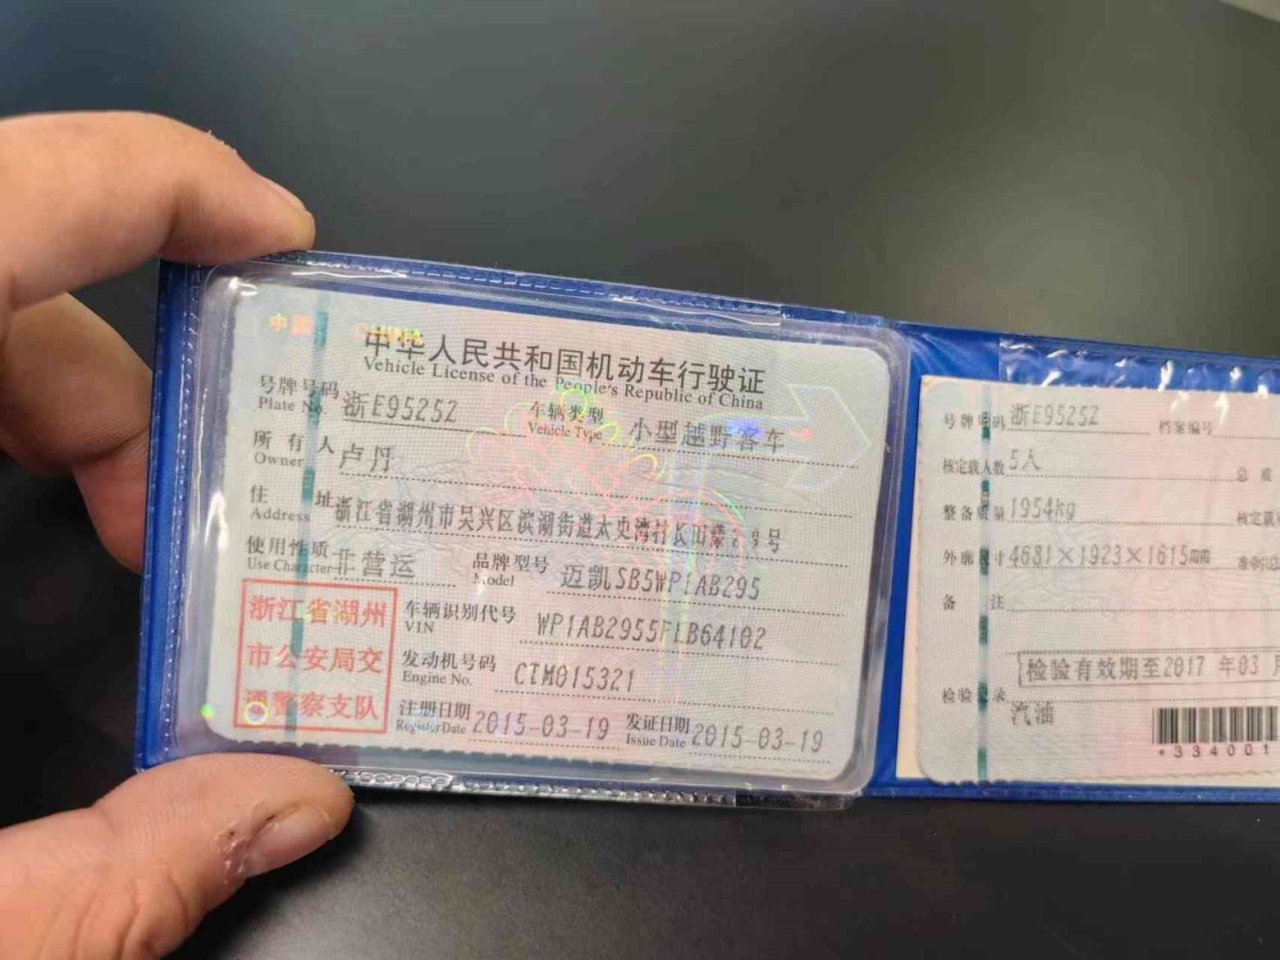 中国 CHINA
中华人民共和国机动车行驶证
Vehicle License of the People's Republic of China
号牌号码 浙E95252 车辆类型 小型越野客车
Plate No. Vehicle Type
所有人 卢丹
Owner
住址 浙江省湖州市吴兴区滨湖街道太史湾村长田漾 号
Address
使用性质 非营运 品牌型号 迈凯SB5WP1AB295
Use Character Model
浙江省湖州
市公安局交
通警察支队
车辆识别代号 WP1AB2955FLB64102
VIN
发动机号码 CTM015321
Engine No.
注册日期 2015-03-19 发证日期 2015-03-19
Register Date Issue Date
号牌号码 浙E95252 档案编号
核定载人数 5人 总质
整备质量 1954kg 核定载
外廓尺寸 4681×1923×1615mm 准牵引总
备注
检验有效期至2017 年03 月
检验记录
汽油
*334001